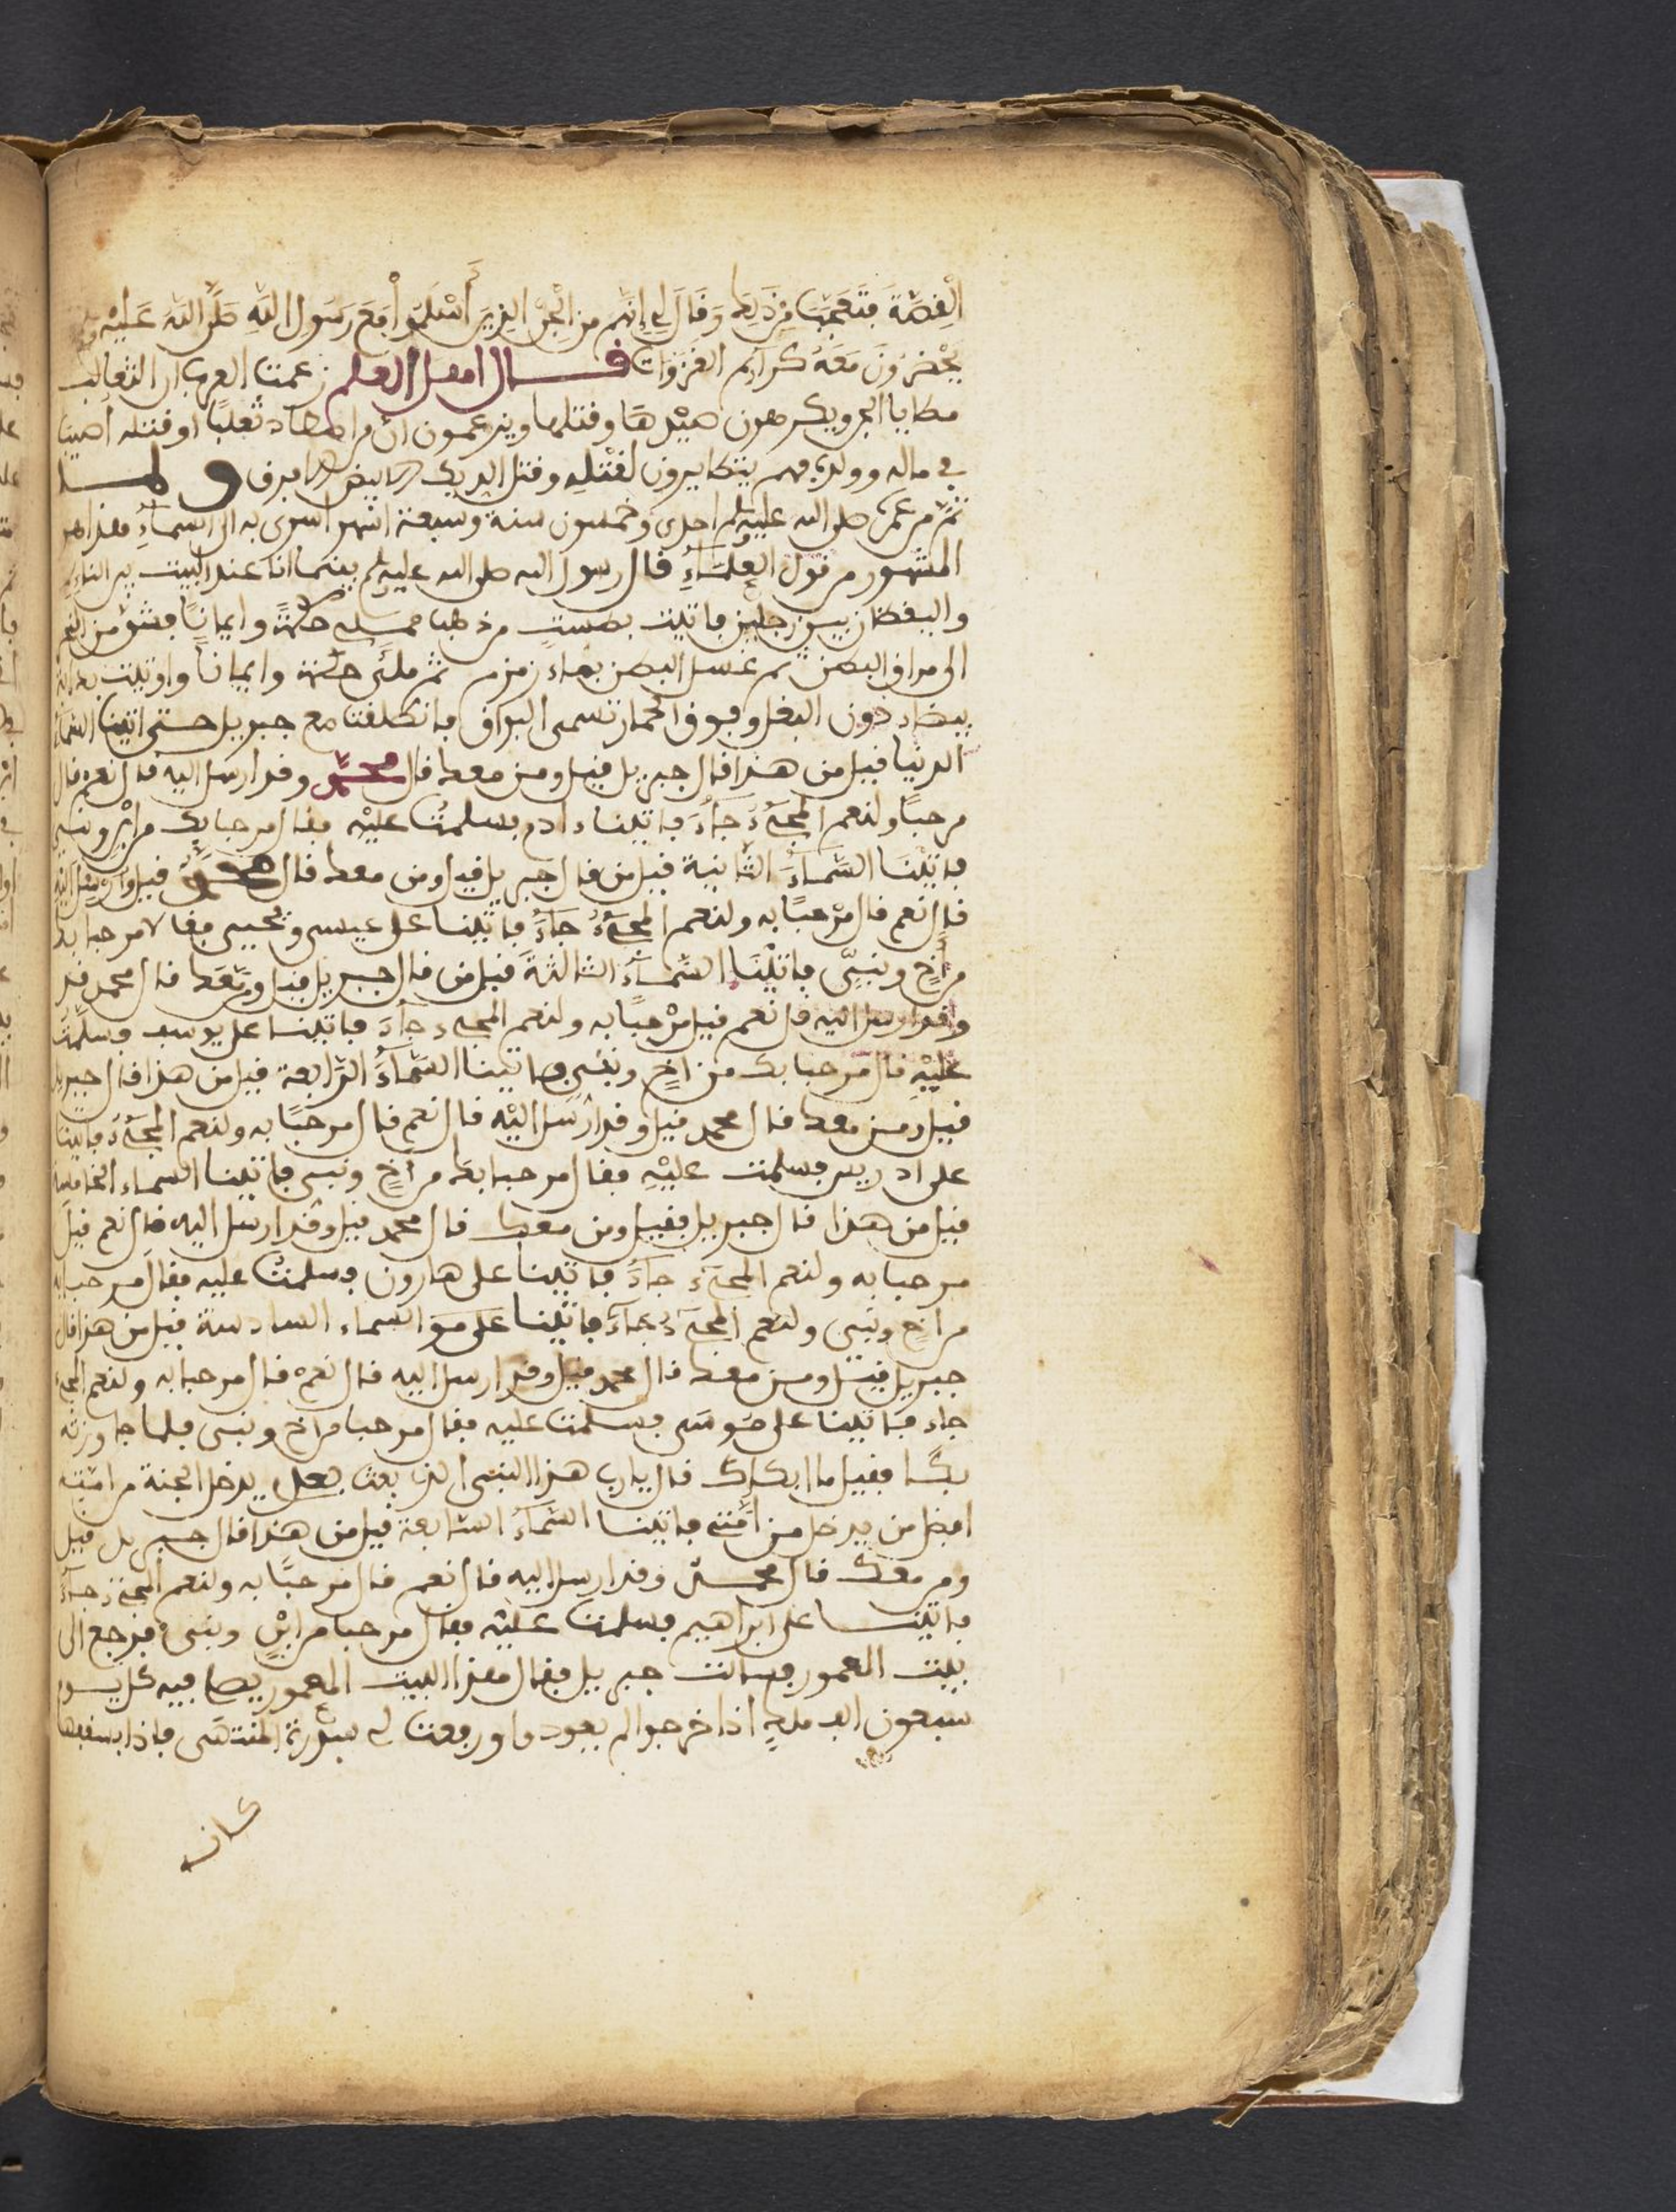 الْقِصَّةَ فتعجب من ذلك وَقَالَ لِي إِنَّهُم من الجن الذين أَسْلَمُوا مَعَ رَسُولِ اللَّهِ صَلَّى اللَّهُ عَلَيْهِ
يَحْضرُونَ مَعَهُ الغَزَوَات قـــال اهل العلم زعمت العرب ان الثعالب
مطايا الجن ويكرهون صَيْدهَا وقتلها ويزعمون ان من اصطاد ثعلبًا او قتله اصيب
في ماله وولده فهم يتطايرون لقتله وقتل الديك الابيض الافرق ولمـــا
تم من عمره صلى الله عليه وسلم احدى وخمسون سنة وسبعة اشهر اسرى به الى السماءِ هذا هو
المشهور من قول العلماءِ قال رسول الله صلى الله عليه وسلم بينما انا عند البيت بين النائم
واليقظان بين رجلين فاتيت بطست من ذهب حكمةً وايمانًا فشق من النحر
الى مراق البطن ثم غسل البطن بماء زمزم ثم ملئ حكمة وايمانا واوتيت بدابة
بيضاء دون البغل وفوق الحمار تسمى البراق فانطلقت مع جبريل حتى اتينا السماء
الدنيا قيل من هذا قال جبريل قيل ومن معك قال محمد وقد ارسل اليه قال نعم قال
مرحبًا ولنعم المجيءُ جَاءَ فاتينا ءادم فسلمتُ عليْه فقال مرحبا بك من ابْن ونبي
فاتيْنَا السَّمَاءَ الثَّانية قيل من قال جبريل قيل ومن معك قال محمد قيل وارسل اليه
قال نعم قال مرْحبًا به ولنعم المجيءُ جَاءَ فاتينا على عيسى ويحيى فقالا مرحبا بك
من أخٍ ونبيٍّ فاتيْنَا السَّمَاءَ الثالثةَ قيل من قال جبريل قيل ومن معك قال محمد قيل
وقد ارسل اليه قال نعم قيل مرْحبًا به ولنعم المجيء جاءَ فاتينا على يوسف فسلمت
عليْهِ قال مرحبا بك من اخٍ ونبي فاتينا السَّمَاءَ الرَّابعة قيل من هذا قال جبريل
قيل ومن معك قال محمد قيل وقد ارْسل اليْه قال نعم قال مرحبًا به ولنعم المجيءُ فاتينا
على ادريس فسلمت عليْهِ فقال مرحبا بك من أخٍ ونبي فاتينا السماء الخامسة
قيل من هذا قال جبريل فقيل ومن معك قال محمد قيل وقد ارسل اليه قال نعم قيل
مرحبا به ولنعم المجيء جاءَ فاتينا على هارون فسلمتُ عليه فقال مرحبا بك
من اخٍ ونبي ولنعم المجيءُ جاءَ فاتينا عَلَى السماء السادسة قيل من هذا قال
جبريل قيل ومن معك قال محمد قيل وقد ارسل اليه قال نعمْ قال مرحبا به ولنعم المجيء
جاء فاتينا على مُوسَى فسلمت عليه فقال مرحبا من اخ ونبي فلما جاوزته
بكا فقيل ما ابكاك قال يا رب هذا النبي الذي بعث بعدي يدخل الجنة من امته
افضل من يدخل من أُمّتي فاتينا السَّمَاءَ السَّابعة قيل من هذا قال جبريل قيل
ومن معك قال محمــد وقد ارسل اليه قال نعم قال مرحبًا به ولنعم المجيءُ جاءَ
فاتينا على ابراهيم فسلمت عليْه فقال مرحبا من ابْنٍ ونبي فرجع الى
بيت المعمور فسالت جبريل فقال هذا البيت المعمور يصلى فيه كل يوم
سبعون الف ملكٍ اذا خرجوا لم يعودوا ورفعت لي سدْرة المنتهَى فاذا بنبقها
كانه